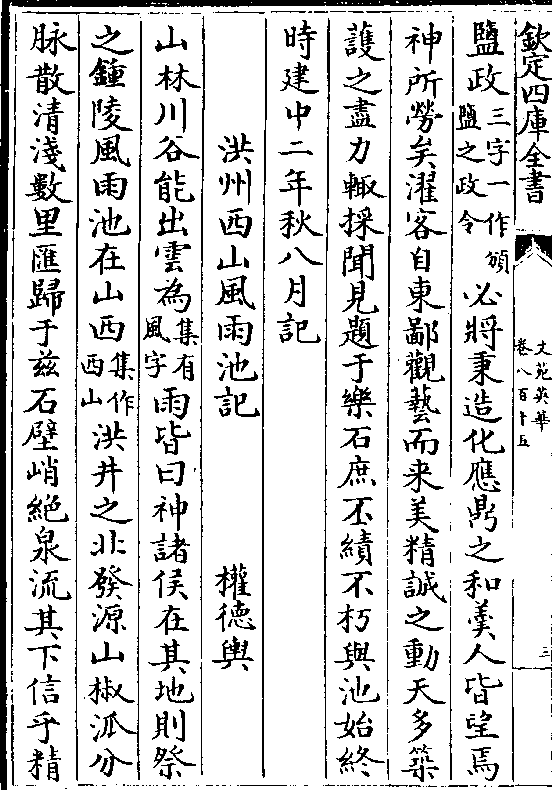 欽定四庫全書
文苑英華
卷八百十五
三
鹽政三字一作頒鹽之政令必將秉造化應鼎之和羹人皆望焉
神所勞矣濯客自東鄙觀藝而来美精誠之動天多築
護之盡力輙採聞見題于樂石庶丕績不朽與池始終
時建中二年秋八月記
洪州西山風雨池記 權德輿
山林川谷能出雲為集有風字雨皆曰神諸侯在其地則祭
之鍾陵風雨池在山西集作西山洪井之北發源山椒派分
脉散清淺數里匯歸于兹石壁峭絶泉流其下信乎精